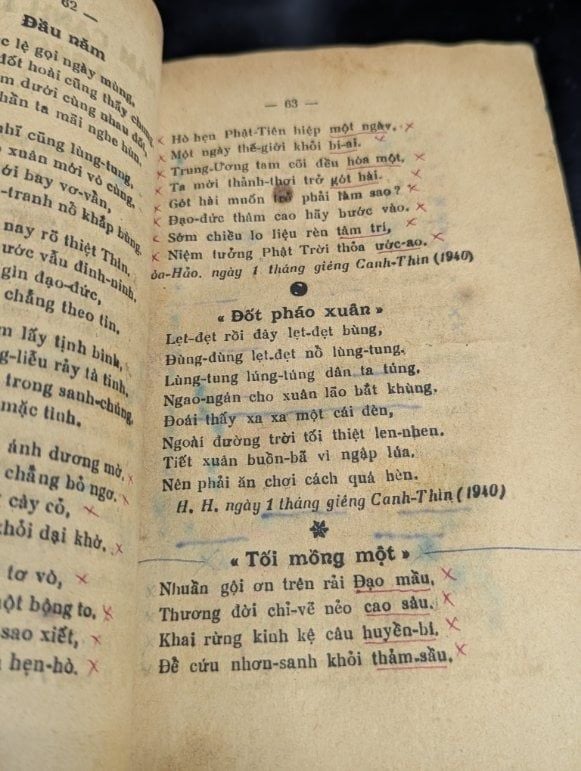 62 —
Đầu năm
lệ gọi ngày mùng,
đốt hoài cũng thấy chung
dưới cùng nhau đốt,
ta mãi nghe hùn,
cũng lùng-tung,
xuân mới vô cùng,
bay vơ-vẩn,
-tranh nổ khắp bùng.
nay rõ thiệt Thìn,
vẫn đinh-ninh,
gìn đạo-đức,
chẳng theo tin.
lấy tịnh bình,
-liễu rảy tà tinh,
trong sanh-chúng,
mặc tình.
ánh dương mờ,
chẳng bỏ ngơ.
cây cỏ,
khỏi dại khờ.
tơ vò,
bộng to,
sao xiết,
hẹn-hò.
— 63 —
Hò hẹn Phật-Tiên hiệp một ngày,
Một ngày thế-giới khỏi bi-ai.
Trung-Ương tam cõi đều hòa một,
Ta mới thảnh-thơi trở gót hài.
Gót hài muốn trở phải làm sao?
Đạo-đức thâm cao hãy bước vào.
Sớm chiều lo liệu rèn tâm trí,
Niệm tưởng Phật Trời thỏa ước-ao.
òa-Hảo, ngày 1 tháng giêng Canh-Thìn (1940)
« Đốt pháo xuân »
Lẹt-đẹt rồi đây lẹt-đẹt bùng,
Đùng-đùng lẹt-đẹt nổ lùng-tung.
Lùng-tung lủng-tủng dân ta túng,
Ngao-ngán cho xuân lão bắt khùng.
Đoái thấy xa xa một cái đèn,
Ngoài đường trời tối thiệt len-nhen.
Tiết xuân buồn-bã vì ngập lúa,
Nên phải ăn chơi cách quá hèn.
H. H. ngày 1 tháng giêng Canh-Thìn (1940)
« Tối mồng một »
Nhuần gội ơn trên rải Đạo mầu,
Thương đời chỉ-vẽ nẻo cao sâu.
Khai rừng kinh kệ câu huyền-bí,
Để cứu nhơn-sanh khỏi thảm-sầu.